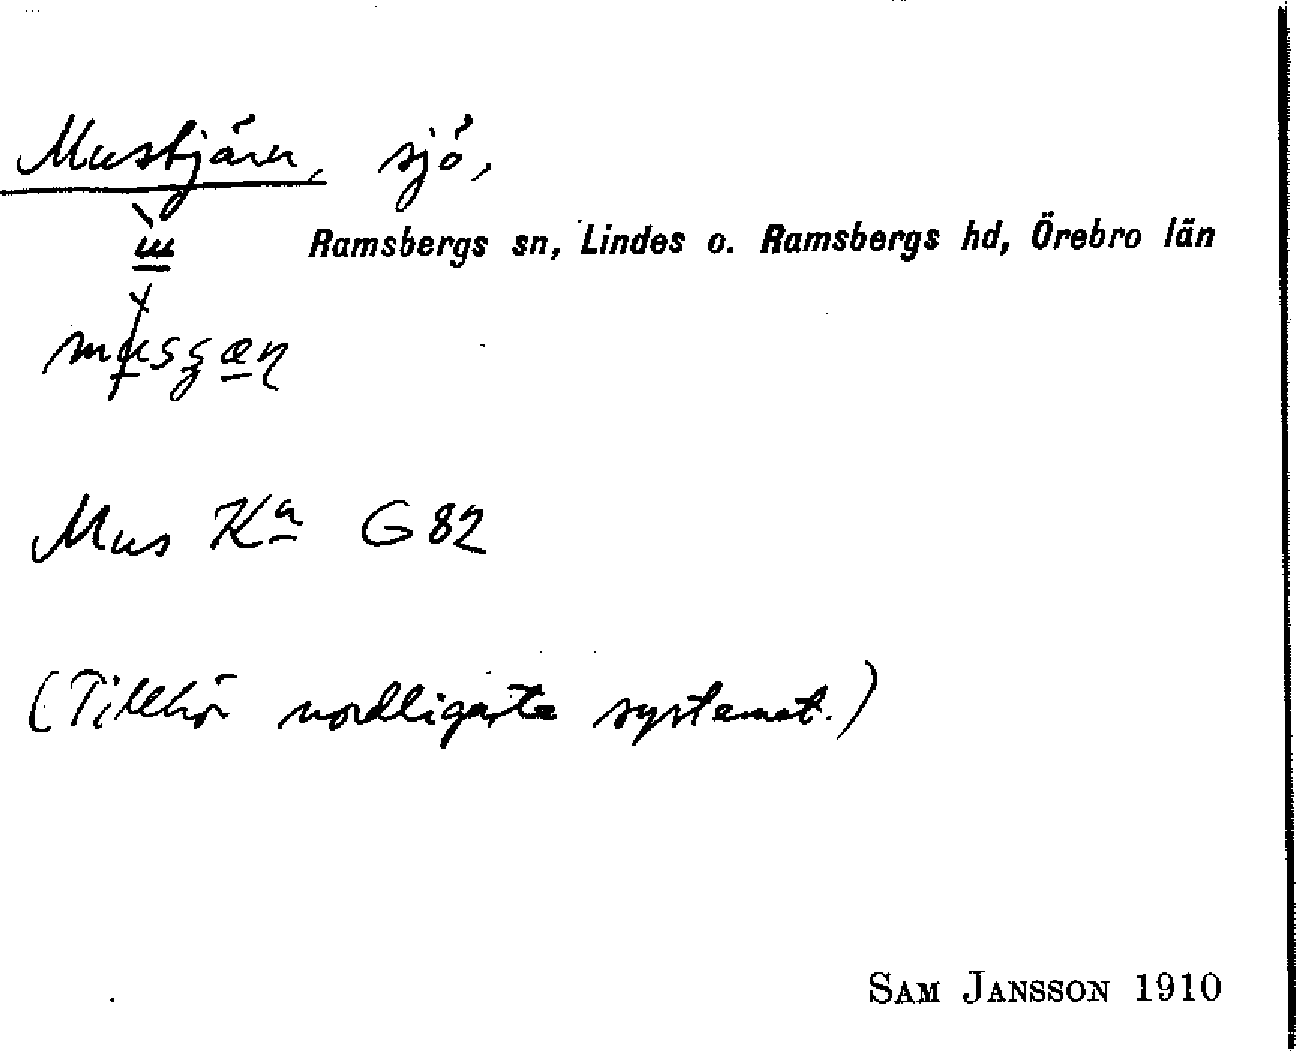 Mustjärn, sjö,
Ramsbergs sn, Lindes o. Ramsbergs hd, Örebro län
Mus Ka G 82
(Tillhör nordligaste systemet.)
SAM JANSSON 1910